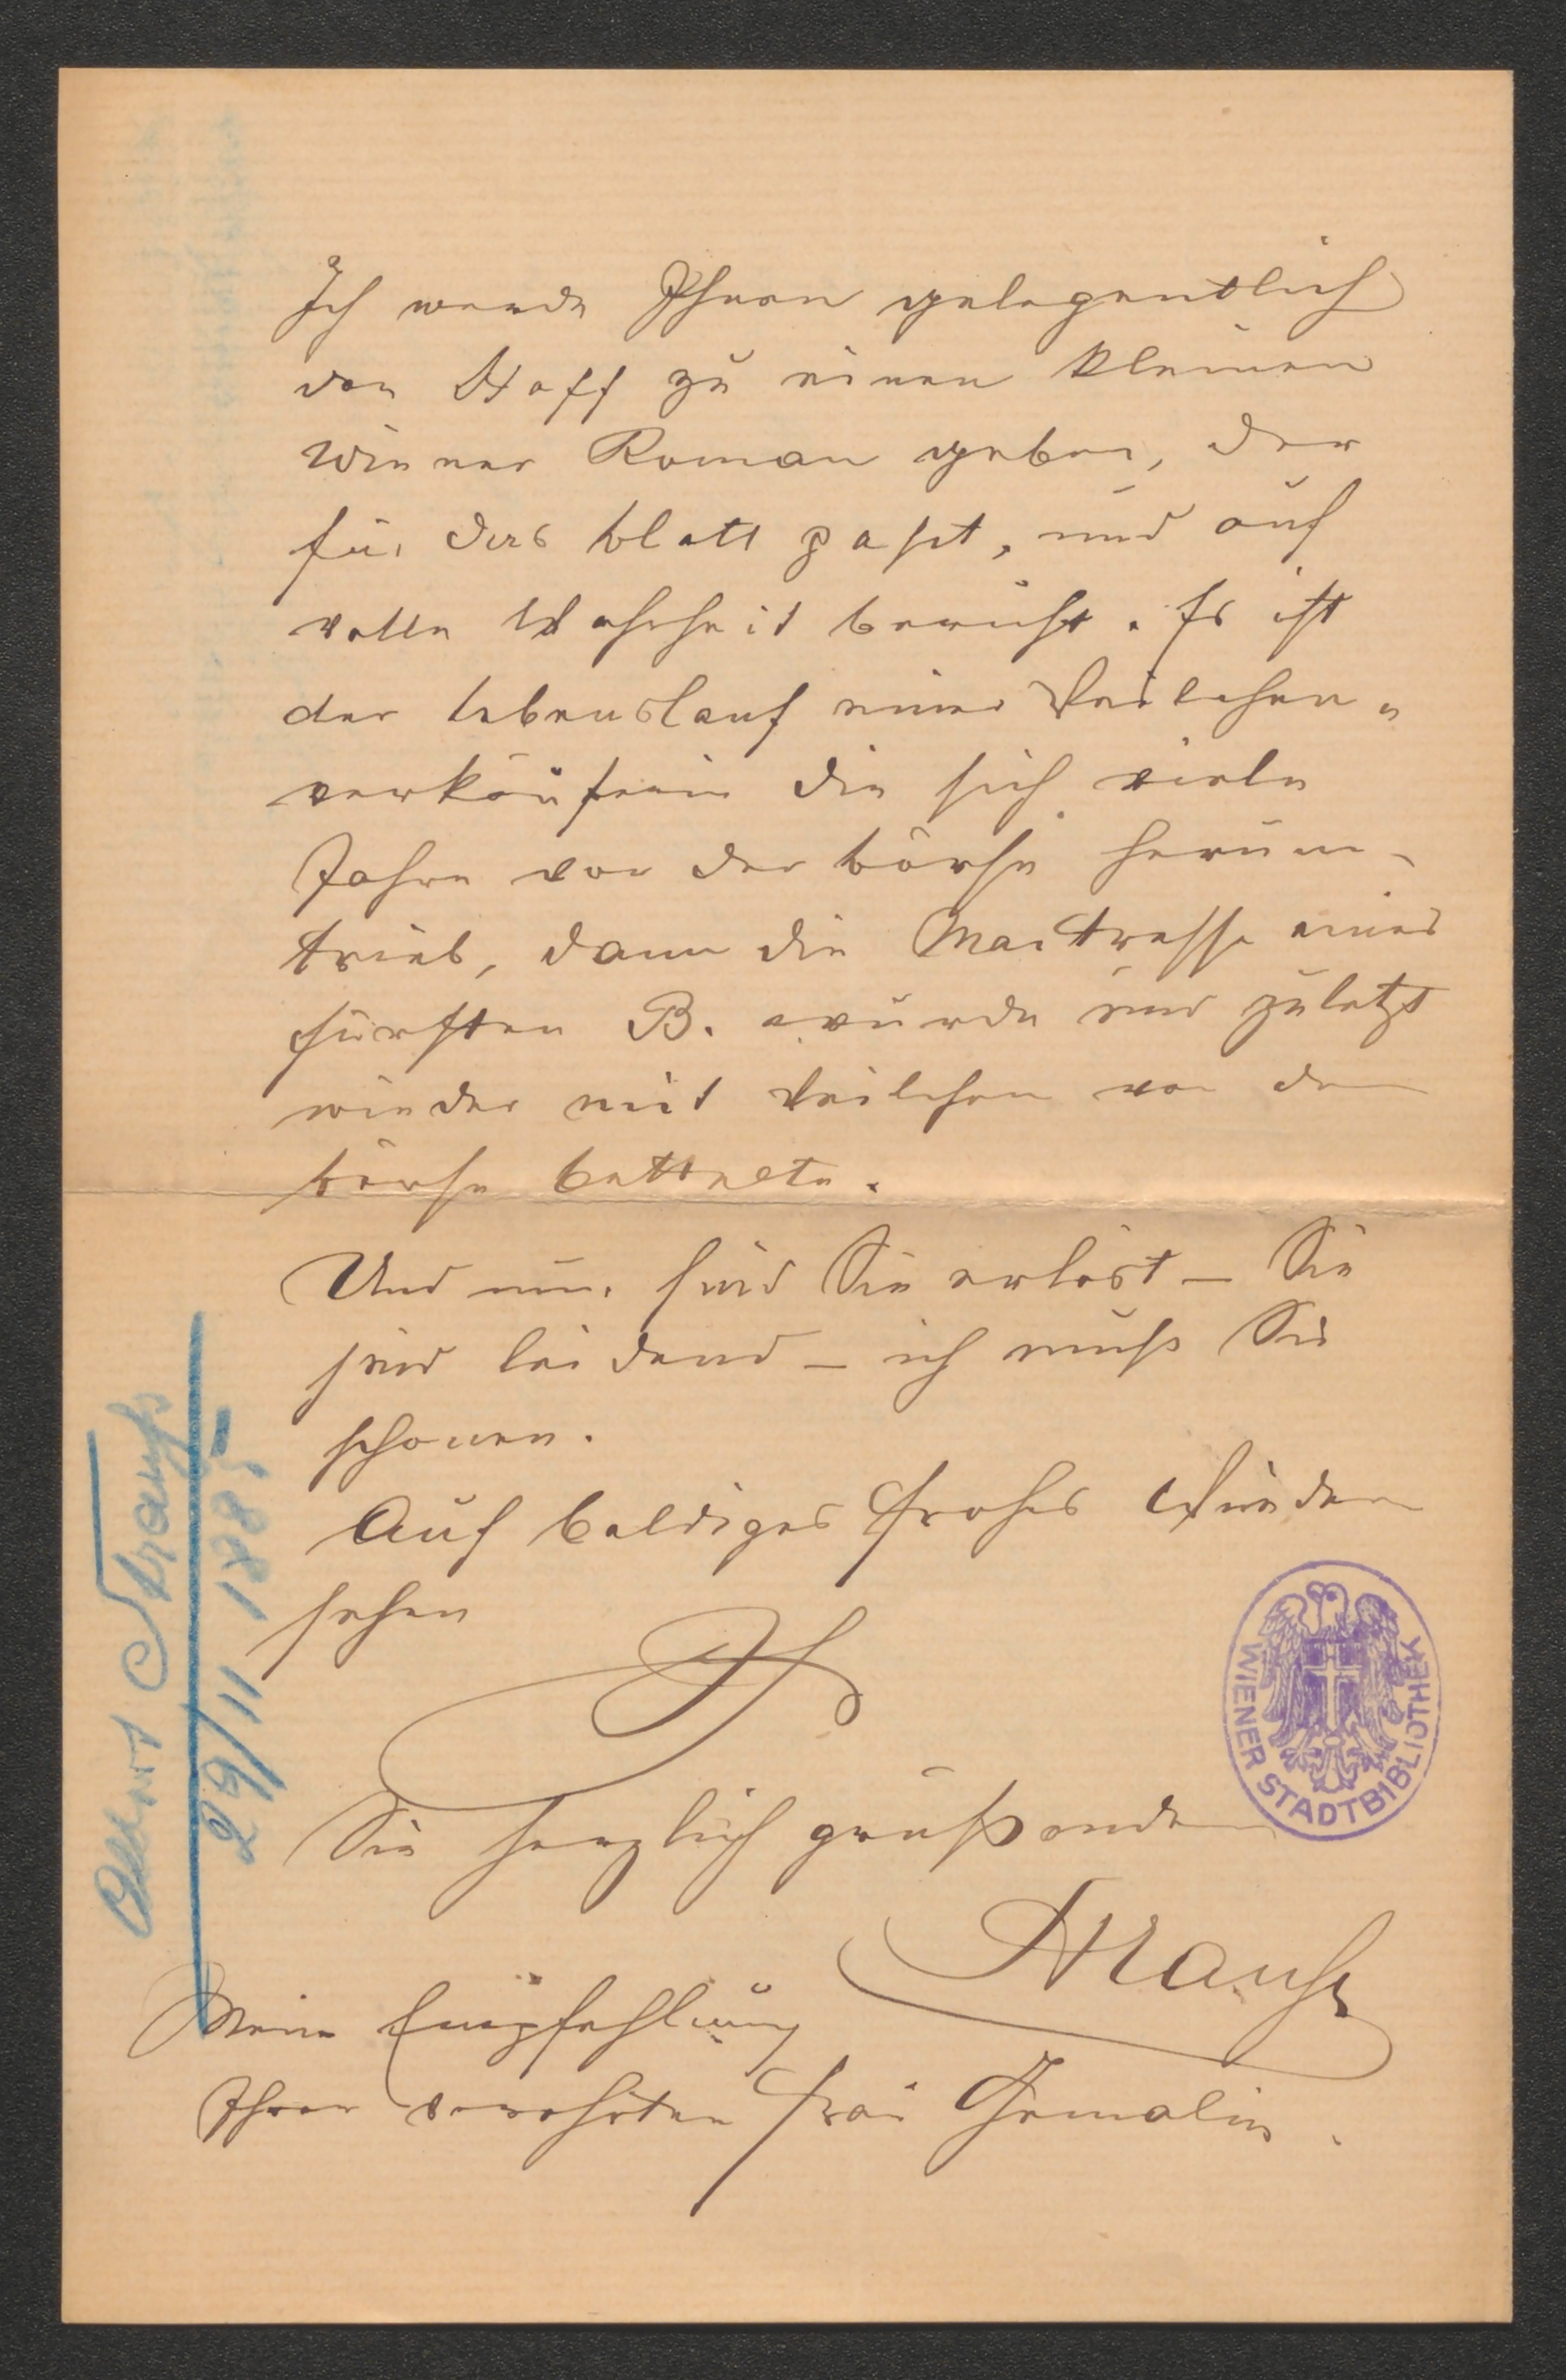 Ich werde Ihnen gelegentlich
den Stoff zu einen kleinen
Wiener Roman geben, der
für das Blatt paßt, und auf
voller Wahrheit beruht. Es ist
der Lebenslauf einer Veilchen„
verkäuferin die sich viele
Jahre vor der Börse herum-
trieb, dann die Maitresse eines
Fürsten B. wurde und zuletzt
wieder mit Veilchen vor der
Börse bettelte.
Und nun sind Sie erlöst – Sie
sind leidend – ich muß Sie
schonen.
Auf baldiges frohes Wieder
sehen
Ihr
Sie herzlich grüßender
Strauß
Meine Empfehlung
Ihrer verehrten Frau Gemalin.
Strauß
29/11 1885
WIENER STADTBIBLIOTHEK